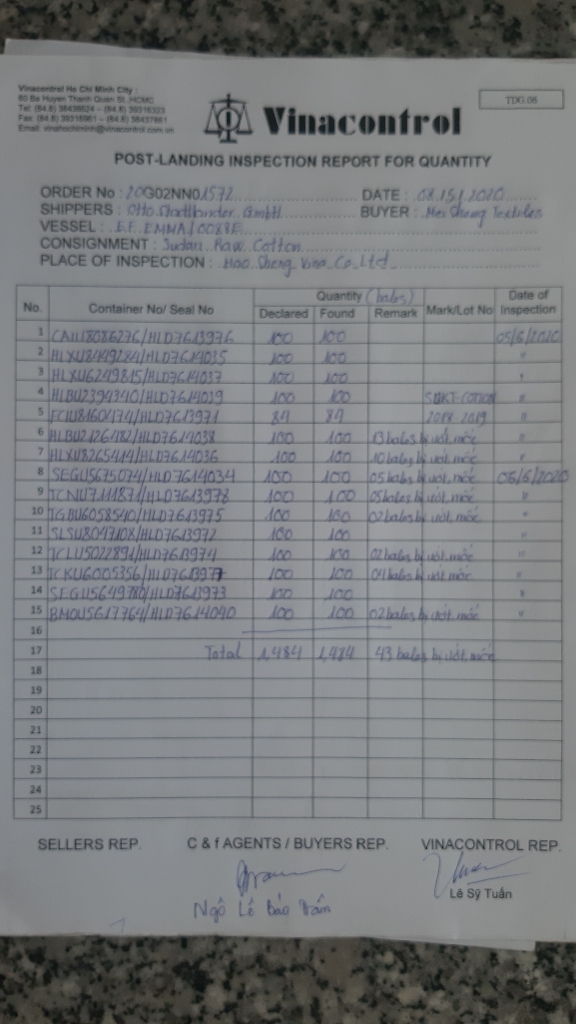 Vinacontrol Ho Chi Minh City :
80 Ba Huyen Thanh Quan St, HCMC
Email: vinahochiminh@vinacontrol.com.vn
TDG.06
Vinacontrol
POST-LANDING INSPECTION REPORT FOR QUANTITY
ORDER No : 20G02NN01572 DATE :
SHIPPERS : Otto Stadtlander GmbH BUYER : Mei Sheng Textiles
VESSEL : E.F. EMMA/0088E
CONSIGNMENT : Sudan Raw Cotton
PLACE OF INSPECTION : Hao Sheng Vina Co Ltd
No. Container No/ Seal No Quantity (bales) Declared Found Remark Mark/Lot No Date of Inspection
1 CAIU8086276/HLD7613976 100 100 05/6/2020
2 HLXU8499284/HLD7614035 100 100 "
3 HLXU6249815/HLD7614037 100 100 "
4 HLBU2394340/HLD7614039 100 100 "
5 FCIU8160474/HLD7613971 84 84 2018-2019 "
6 HLBU2126482/HLD7614038 100 100 13 bales bị ướt, mốc "
7 HLXU8265414/HLD7614036 100 100 10 bales bị ướt, mốc "
8 SEGU5675074/HLD7614034 100 100 05 bales bị ướt, mốc 06/6/2020
9 TCNU7111871/HLD7613978 100 100 05 bales bị ướt, mốc "
10 TGBU6058540/HLD7613975 100 100 02 bales bị ướt, mốc "
11 SLSU8047108/HLD7613972 100 100 "
12 TCLU5022891/HLD7613974 100 100 02 bales bị ướt, mốc "
13 TCKU6005356/HLD7613977 100 100 04 bales bị ướt, mốc "
14 SEGU5649780/HLD7613973 100 100 "
15 BMOU5617764/HLD7614040 100 100 02 bales bị ướt, mốc "
16
17 Total 1,484 1,484 43 bales bị ướt, mốc
18
19
20
21
22
23
24
25
SELLERS REP. C & f AGENTS / BUYERS REP. VINACONTROL REP.
Lê Sỹ Tuấn
Ngô Lê Bảo Trâm